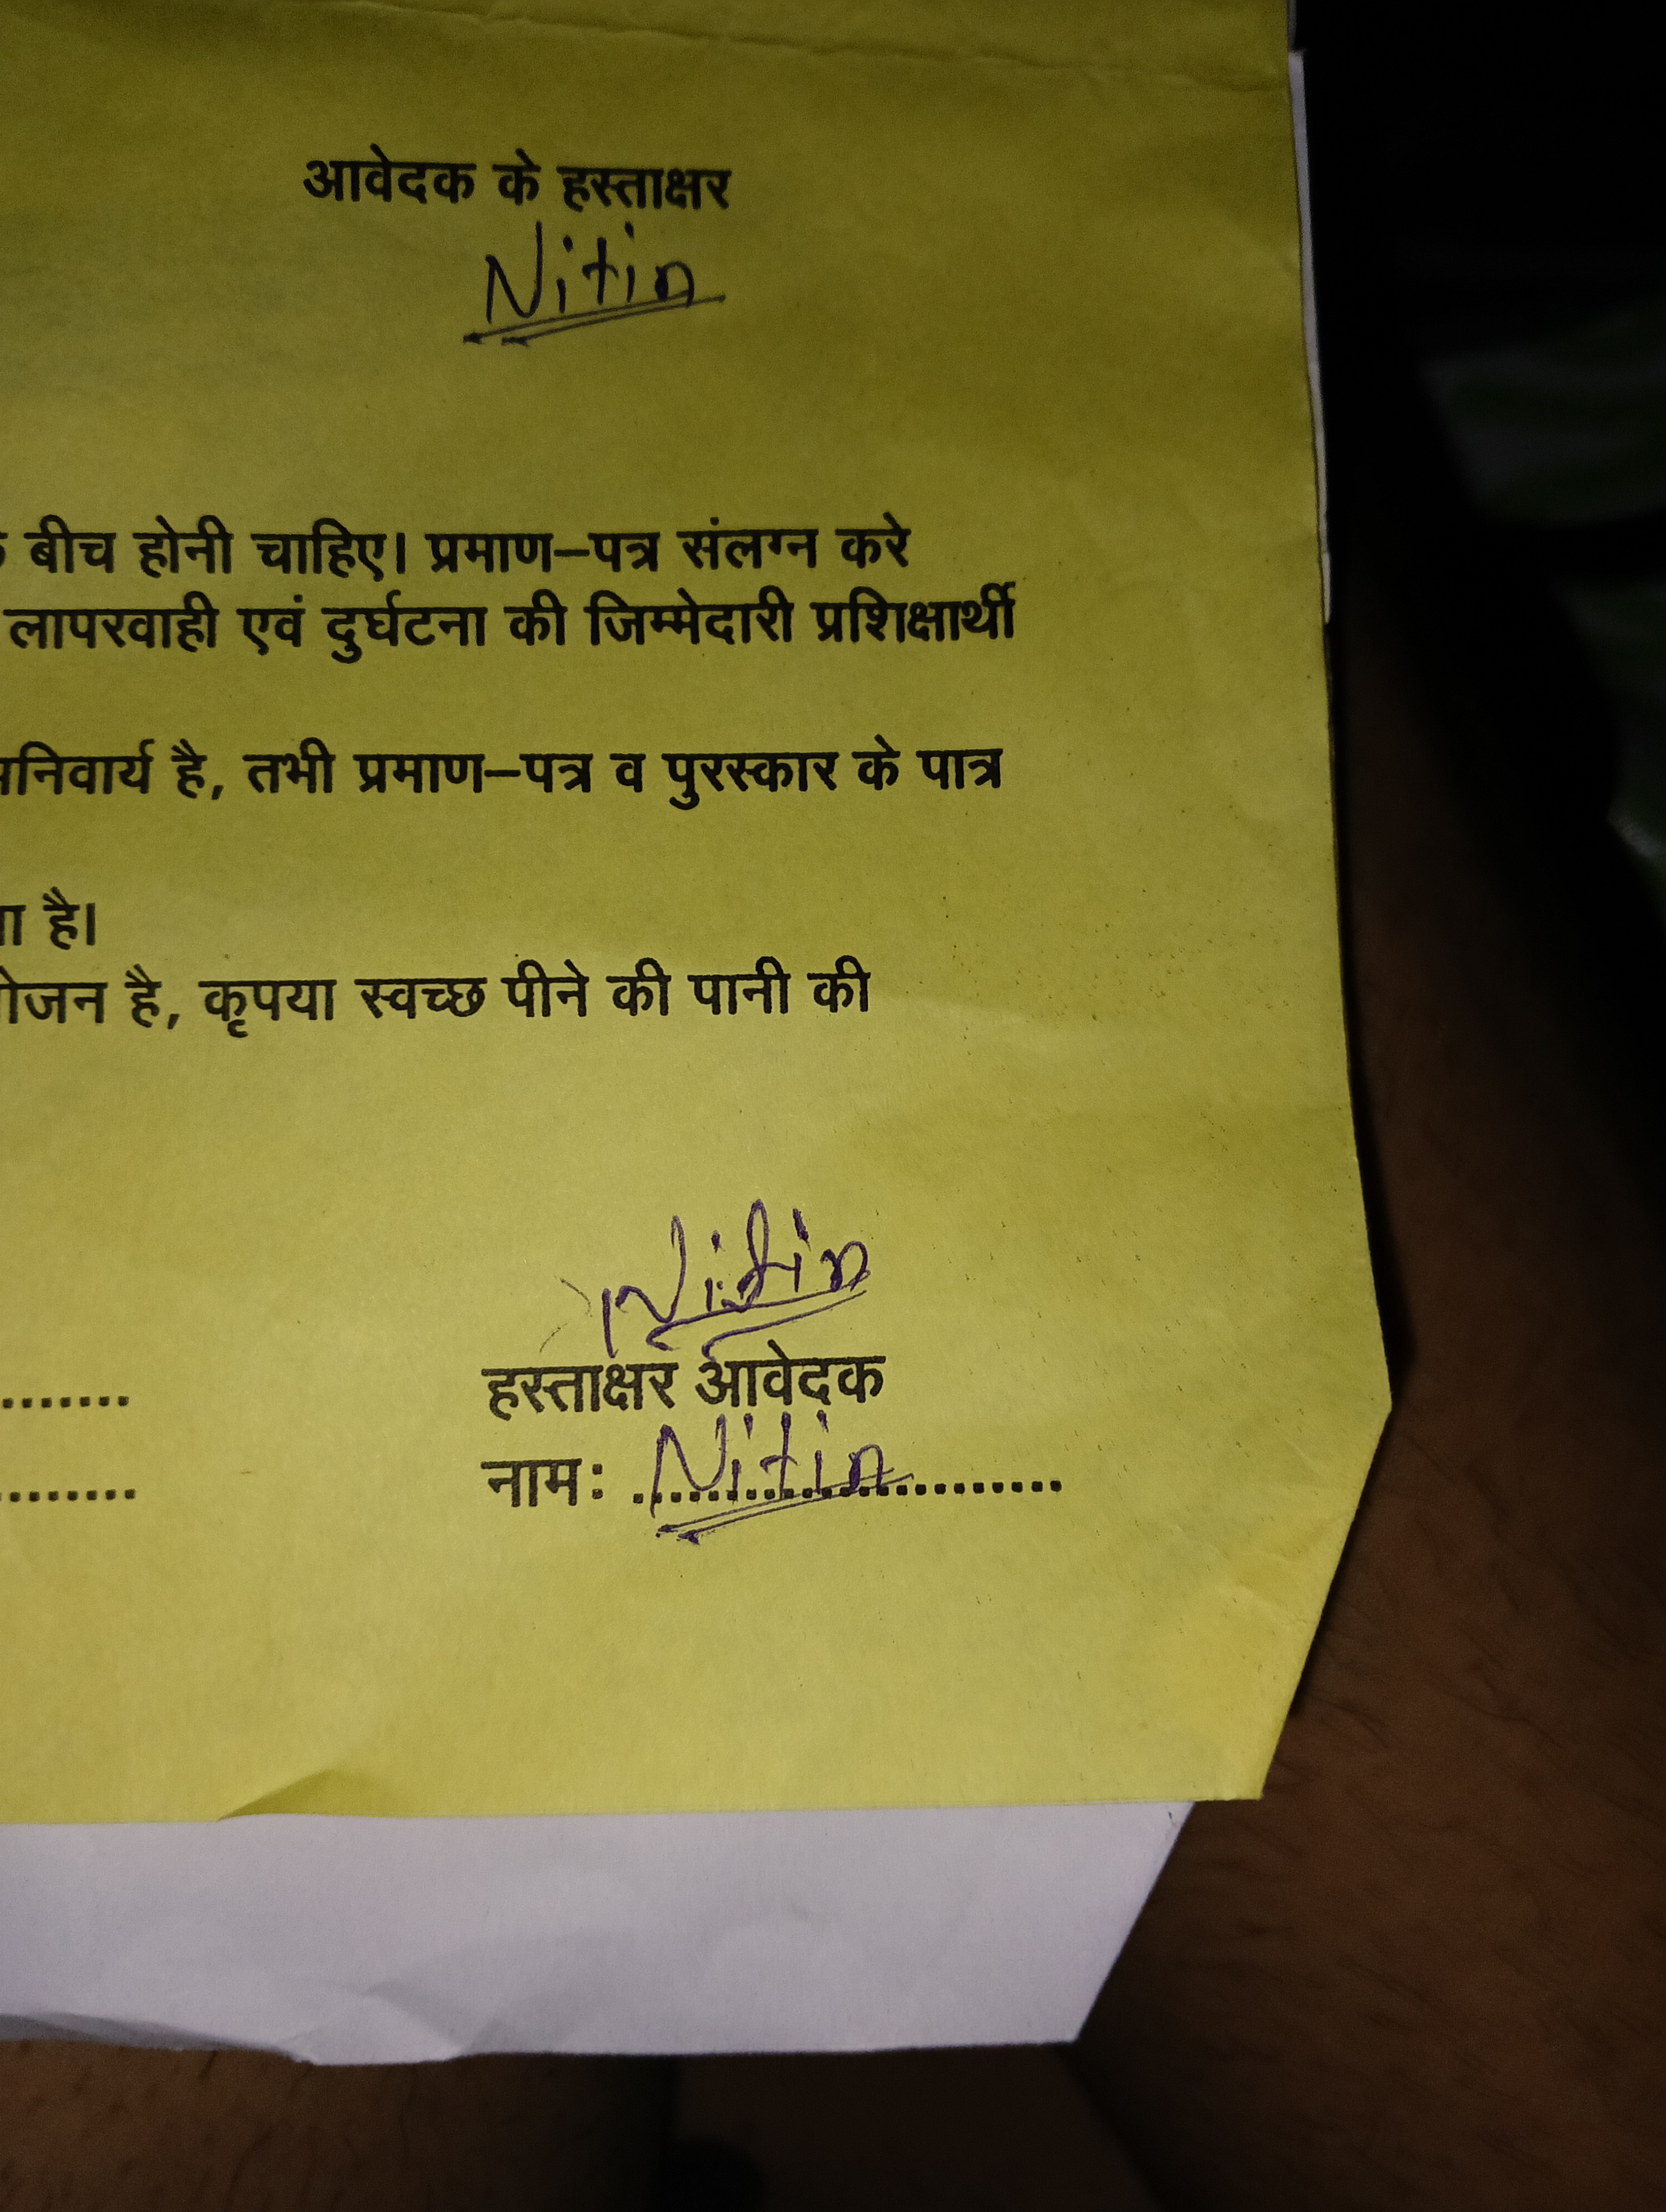 आवेदक के हस्ताक्षर
Nitin
बीच होनी चाहिए। प्रमाण–पत्र संलग्न करे
लापरवाही एवं दुर्घटना की जिम्मेदारी प्रशिक्षार्थी
है, तभी प्रमाण–पत्र व पुरस्कार के पात्र
है।
है, कृपया स्वच्छ पीने की पानी की
Nitin
हस्ताक्षर आवेदक
नामः Nitin